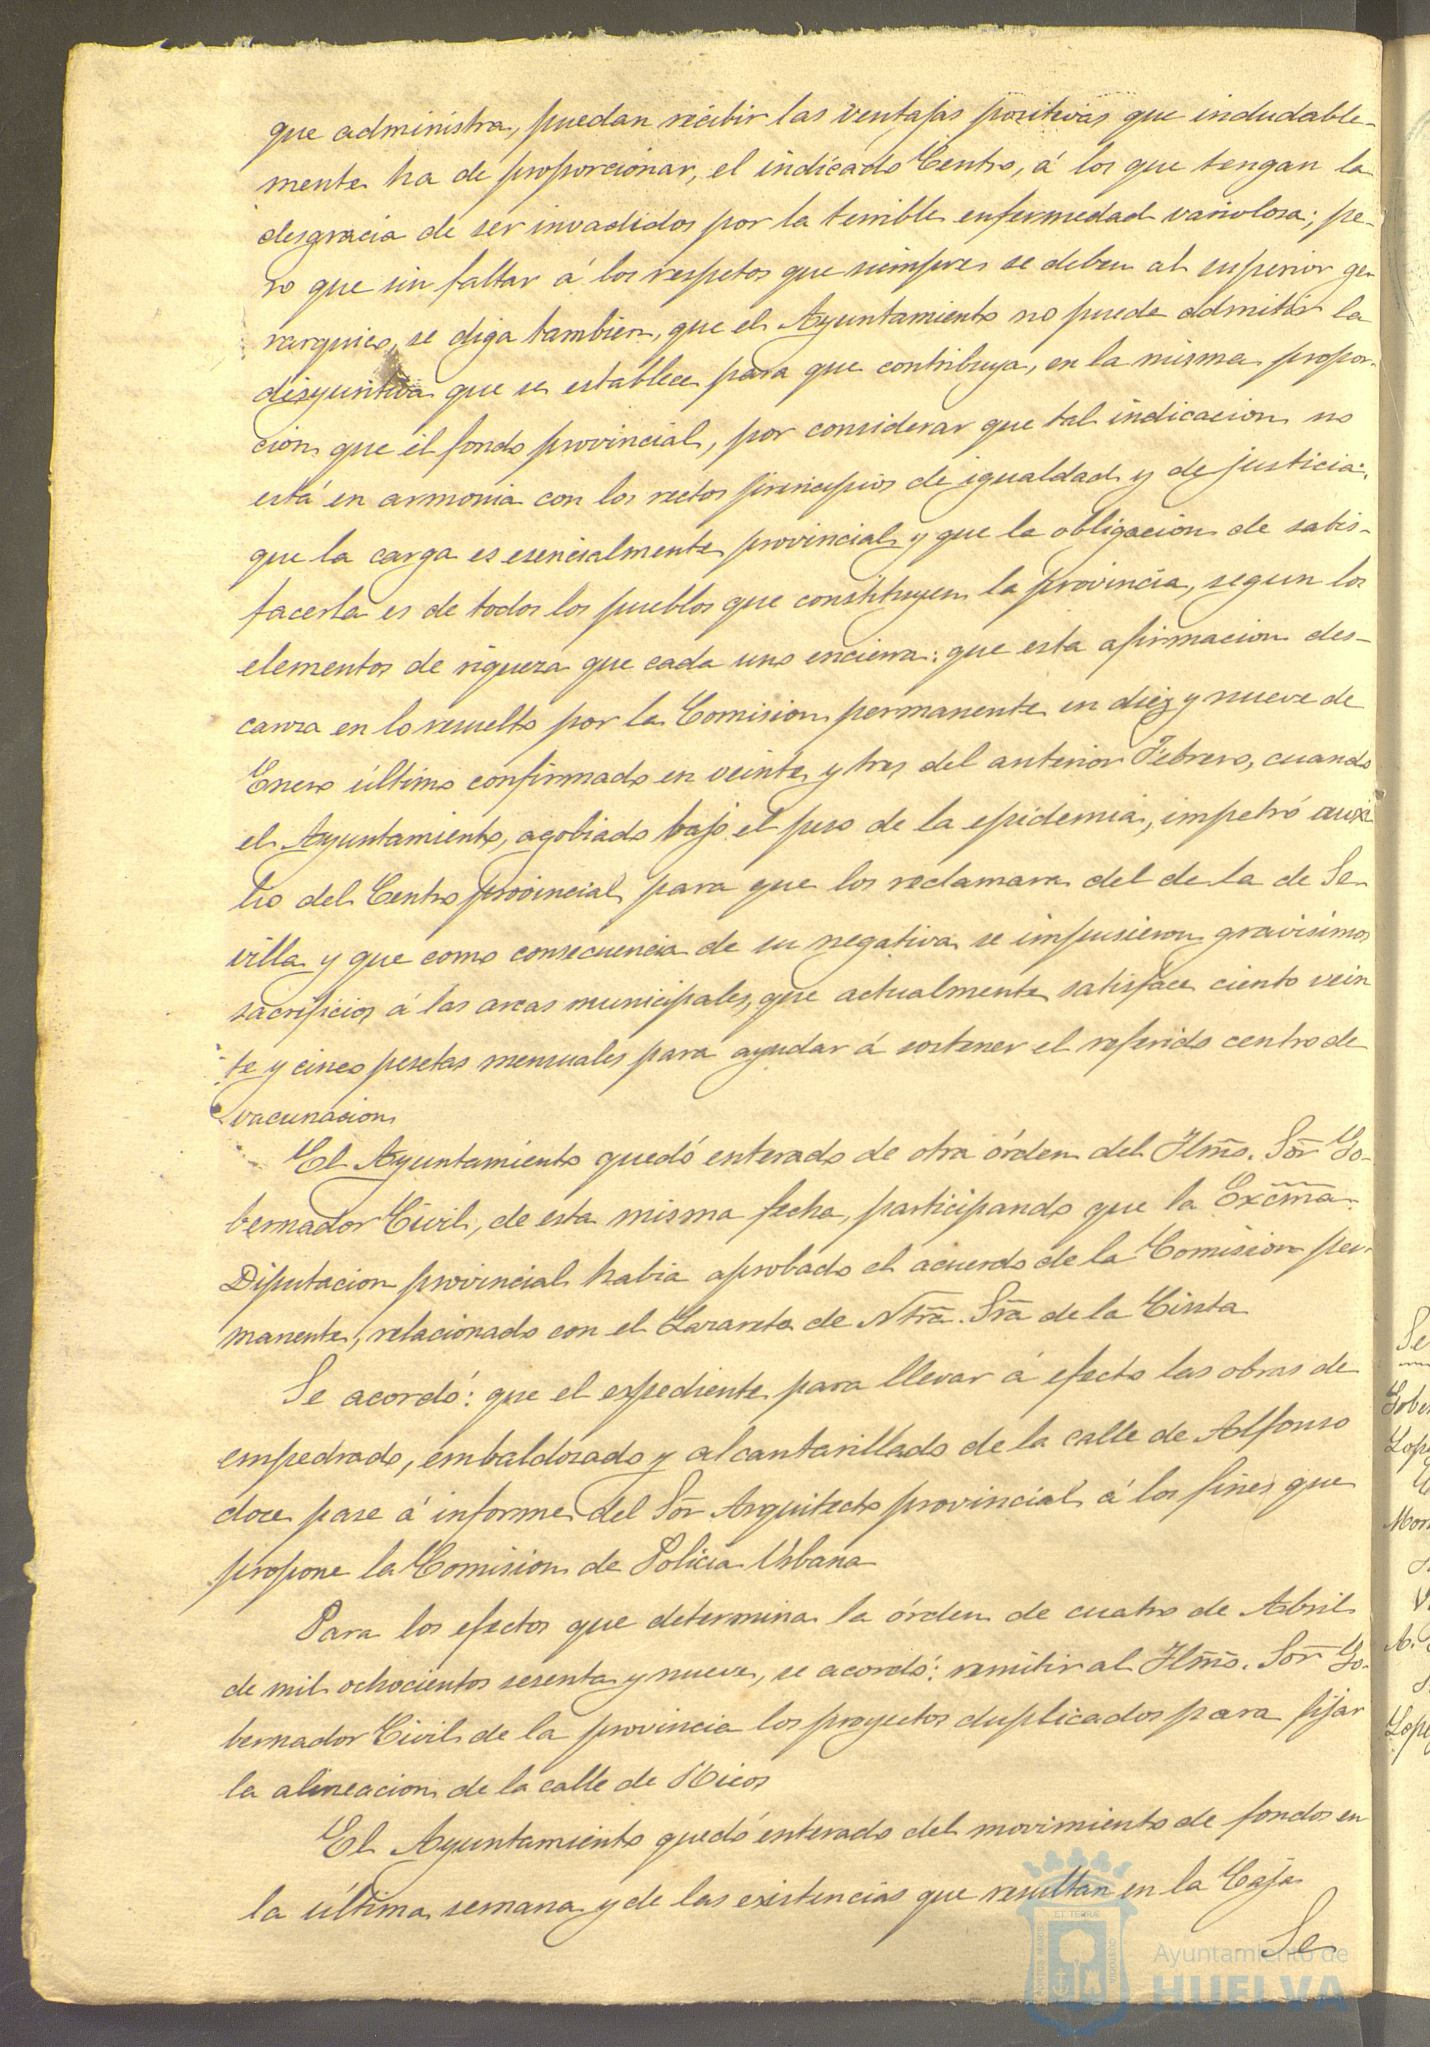 que administra, puedan recibir las ventajas positivas que indudable-
mente ha de proporcionar, el indicado Centro, á los que tengan la
desgracia de ser invadidos por la terrible enfermedad variolosa; pe-
ro que sin faltar á los respetos que siempre se deben al superior ge-
rarquico, se diga tambien, que el Ayuntamiento no puede admitir la
disyuntiva que se establece para que contribuya, en la misma propor-
cion que el fondo provincial, por considerar que tal indicacion no
está en armonia con los rectos principios de igualdad y de justicia:
que la carga es esencialmente provincial y que la obligacion de satis-
facerla es de todos los pueblos que constituyen la provincia, segun los
elementos de riqueza que cada uno encierra: que esta afirmacion des-
canza en lo resuelto por la Comision permanente en diez y nueve de
Enero último confirmado en veinte y tres del anterior Febrero, cuando
el Ayuntamiento, agobiado bajo el peso de la epidemia, impetró auxi
lio del Centro provincial para que los reclamara del de la de Se
villa y que como consecuencia de su negativa se impusieron gravisimos
sacrificios á las arcas municipales, que actualmente satisface ciento vein
te y cinco pesetas mensuales para ayudar á sostener el referido centro de
vacunacion
El Ayuntamiento quedó enterado de otra órden del Ilmo. Sor Go-
bernador Civil, de esta misma fecha, participando que la Excma.
Diputacion provincial habia aprobado el acuerdo de la Comision per-
manente, relacionado con el Lazareto de Ntra. Sra de la Cinta
Se acordó: que el expediente para llevar á efecto las obras de
empedrado, embaldosado y alcantarillado de la calle de Alfonso
doce pase á informe del Sor Arquitecto provincial á los fines que
propone la Comision de Policia Urbana
Para los efectos que determina la órden de cuatro de Abril
de mil ochocientos sesenta y nueve, se acordó: remitir al Ilmo. Sor Go-
bernador Civil de la provincia los proyectos duplicados para fijar
la alineacion de la calle de Ricos
El Ayuntamiento quedó enterado del movimiento de fondos en
la última semana y de las existencias que resultan en la Caja
Se
Ayuntamiento de
HUELVA